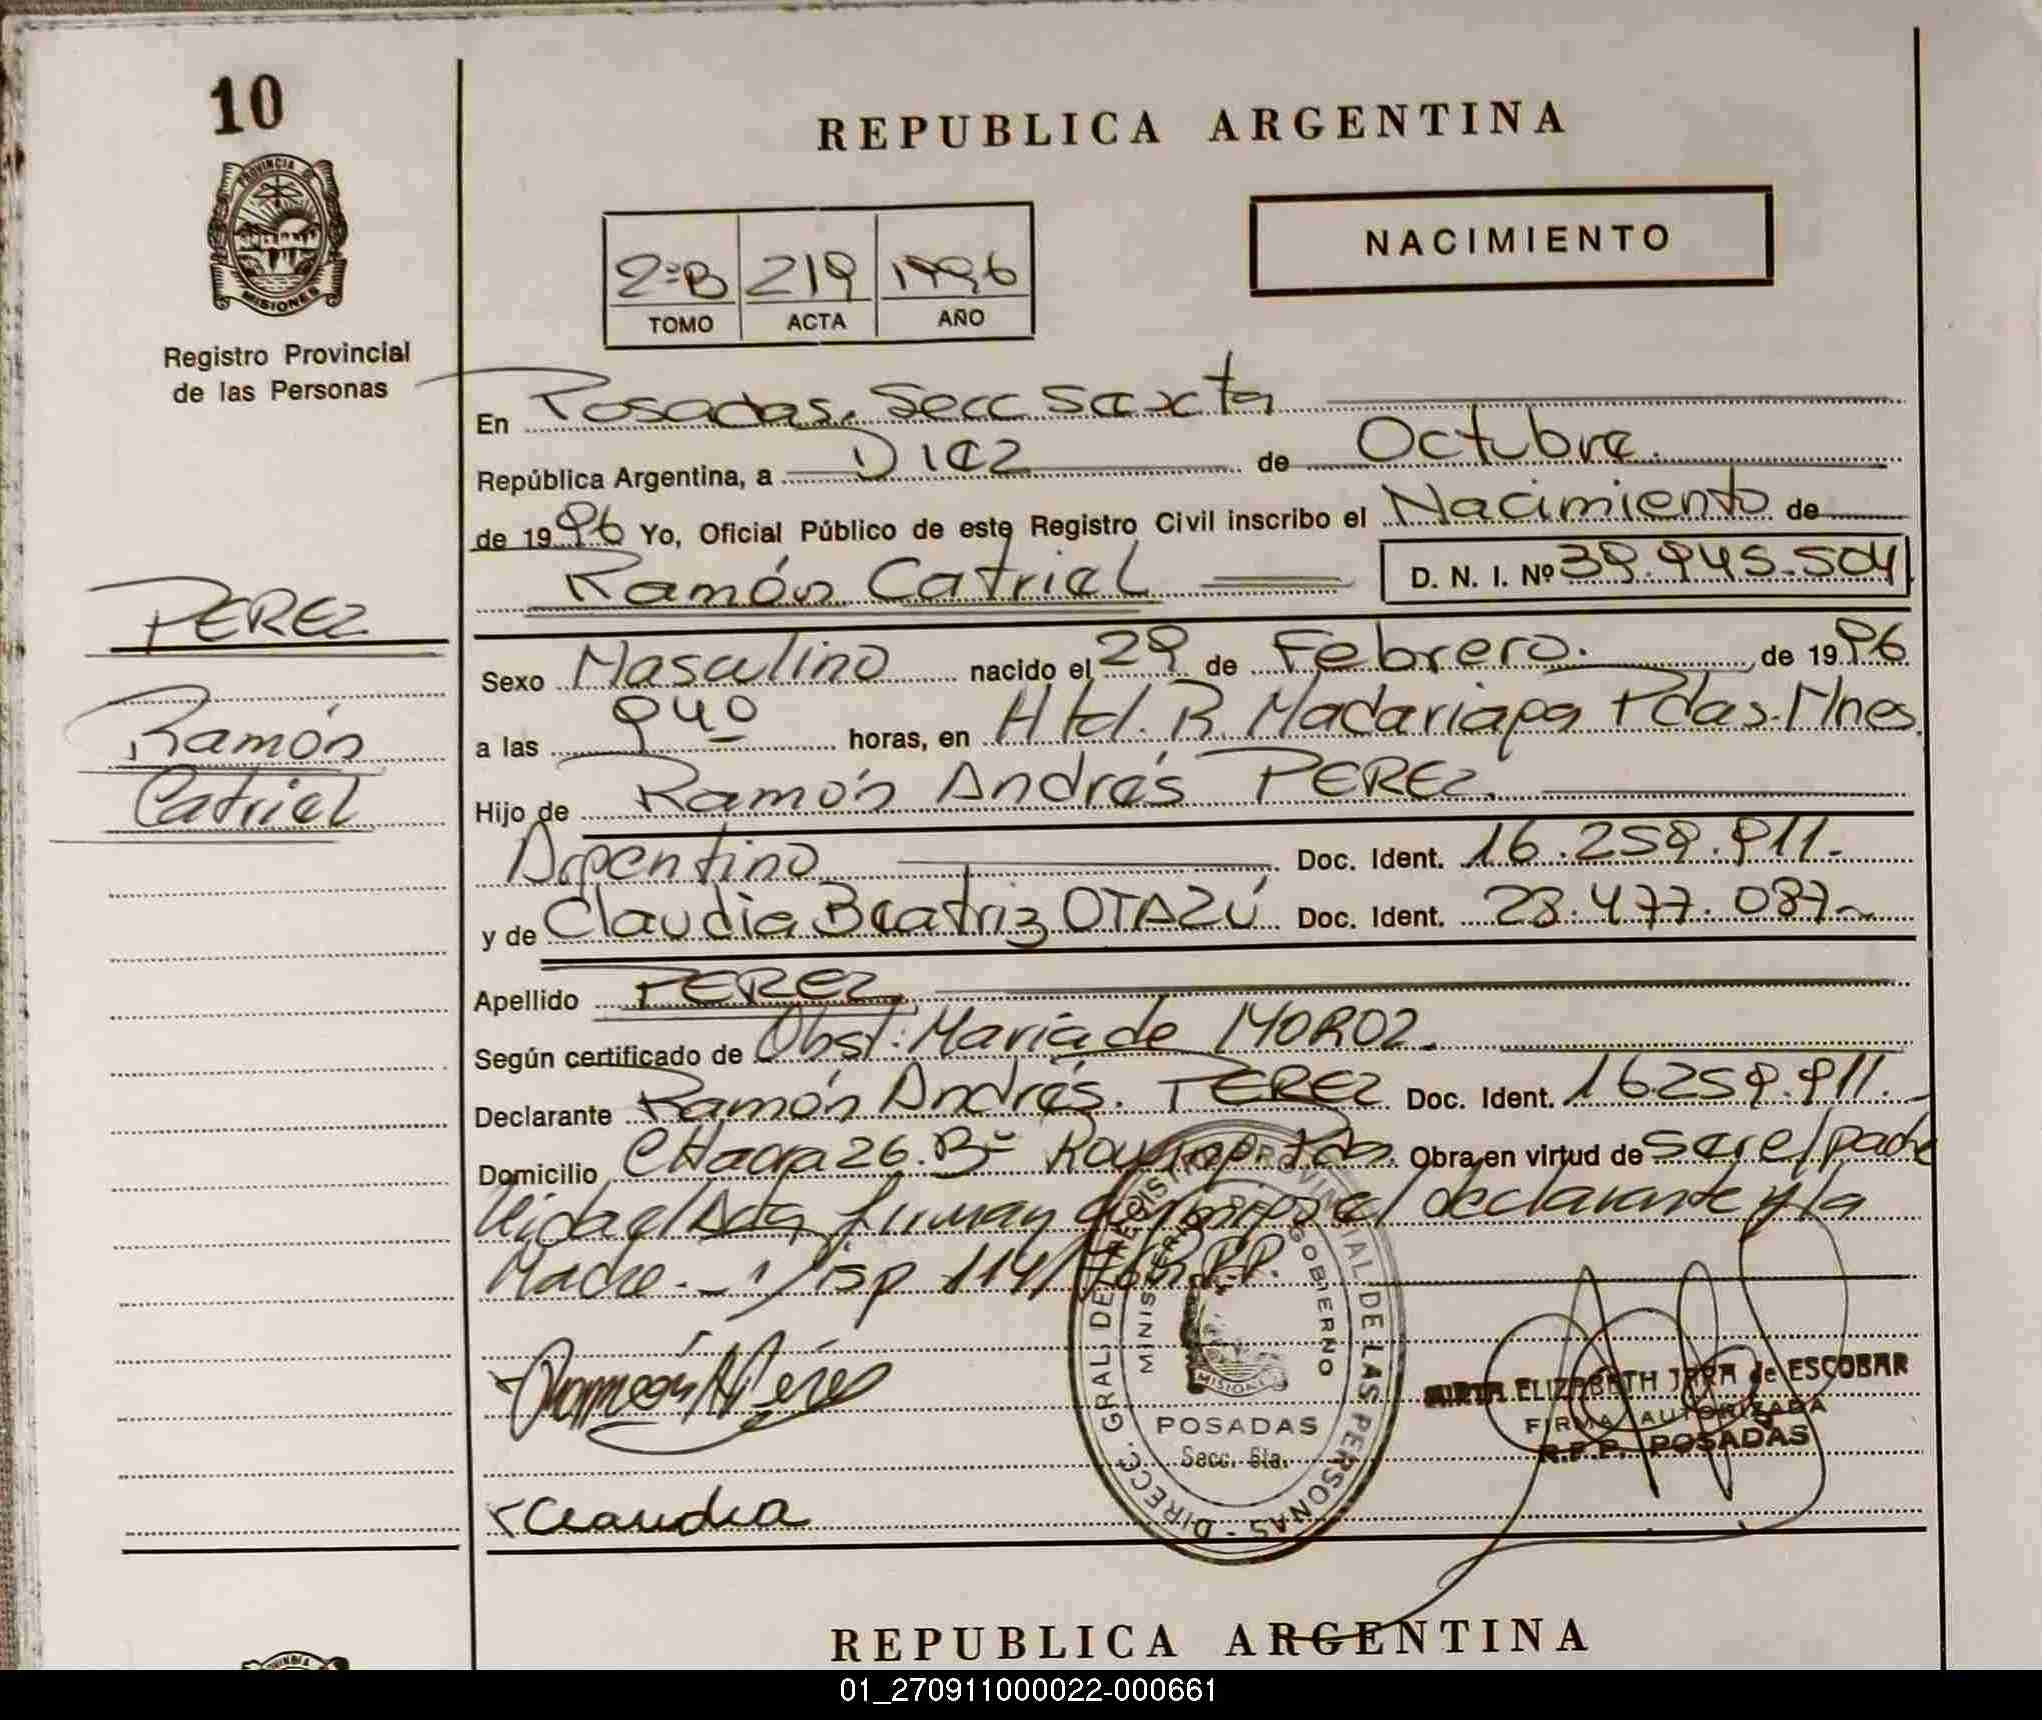 10
PROVINCIA DE
MISIONES
Registro Provincial
de las Personas
REPUBLICA ARGENTINA
NACIMIENTO
2ºB 219 1996
TOMO ACTA AÑO
En Posadas. Secc Sexta
República Argentina, a Diez de Octubre.
de 1996 Yo, Oficial Público de este Registro Civil inscribo el Nacimiento de
Ramón Catriel D. N. I. Nº 39.945.504
PEREZ
Ramón
Catriel
Sexo Masculino nacido el 29 de Febrero. de 1996
a las 940 horas, en Htal. R. Madariaga Pdas. Mnes.
Hijo de Ramón Andrés PEREZ.
Argentino Doc. Ident. 16.259.911.
y de Claudia Beatriz OTAZÚ Doc. Ident. 28.477.087
Apellido PEREZ
Según certificado de Obst: María de MOROZ.
Declarante Ramón Andrés. PEREZ Doc. Ident. 16259.911.
Domicilio CHacra 26. Bº Pdas. Obra en virtud de ser el padre
leida el Acta firman el declarante y la
Madre. - Disp 114/
Ramón A Pérez
Claudia
DIRECC. GRAL. DE REGISTRO PROVINCIAL DE LAS PERSONAS -
MINISTERIO DE GOBIERNO
MISIONES
POSADAS
Secc. 6ta.
ELIZABETH JARA de ESCOBAR
FIRMA AUTORIZADA
R.P.P. POSADAS
REPUBLICA ARGENTINA
01_270911000022-000661